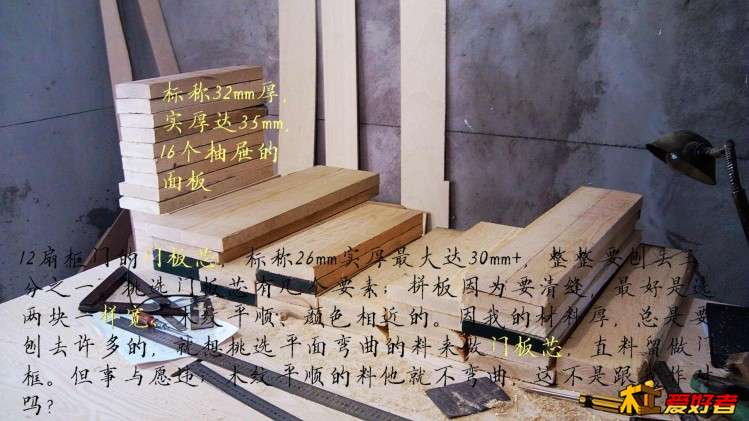 标称32mm厚,
实厚达35mm,
16个抽屉的
面板
12扇框门的门板芯，标称26mm实厚最大达30mm+，整整要刨去三
分之一。挑选门板芯有几个要素：拼板因为要清缝，最好是选
两块一样宽、木纹平顺、颜色相近的。因我的材料厚，总是要
刨去许多的，就想挑选平面弯曲的料来做门板芯，直料留做门
框。但事与愿违：木纹平顺的料他就不弯曲，这不是跟我作对
吗?
木工爱好者